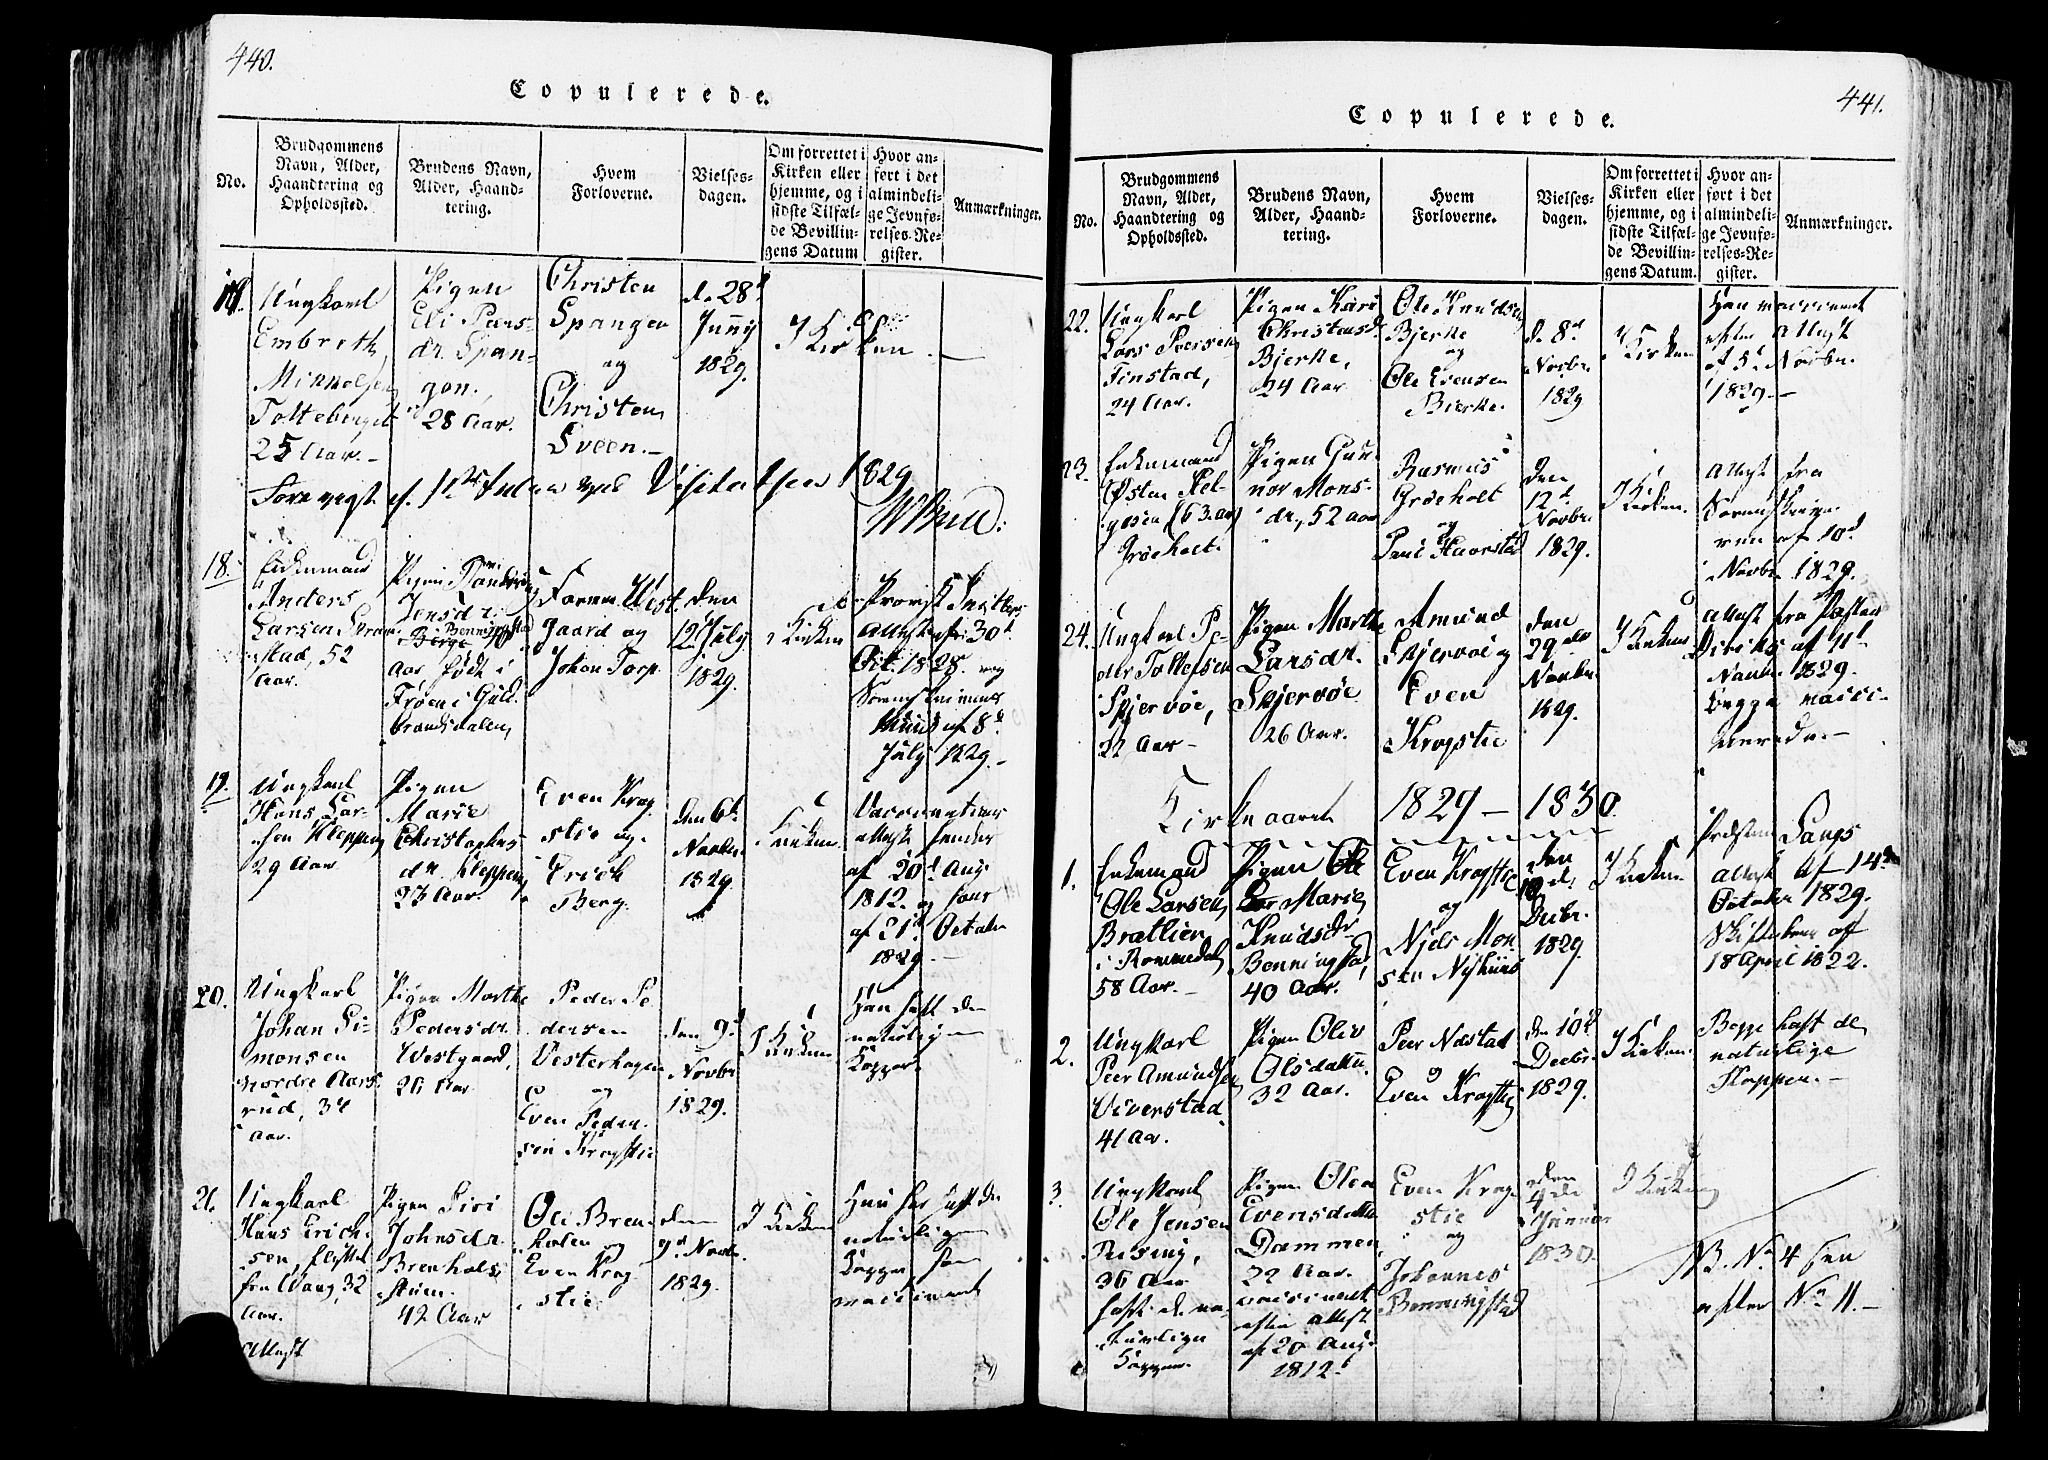 440.
Copulerede.
No.
Brudgommens
Navn, Alder,
Haandtering og
Opholdssted.
Brudens Navn,
Alder, Haand-
tering.
Hvem
Forloverne.
Vielses-
dagen.
Om forrettet i
Kirken eller
hjemme, og i
sidste Tilfæl-
de Bevillin-
gens Datum
Hvor an-
ført i det
almindeli-
ge Jevnfø-
relses-Re-
gister.
Anmærkninger.
Ungkarl
Embreth
Mikkelsen
Tolteberget
25 Aar.
Pigen
Eli Pers-
dr. Span-
gen,
28 Aar.
Christen
Spangen
og
Christen
Sveen.
d. 28d
Junij
1829.
I Kirken.
Visitatsen 1829
18.
Enkemand
Anders
Larsen
stad, 52
Aar.
Pigen
Jensdr.
Benningstad
Aar, født i
Froen i Guld-
brandsdalen,
Vest-
gaard og
Johan Torp.
den
12 July
1829.
I Kirken
Provst
Attest af 30d
Oct. 1828 og
Sorenskriverens
af 8d
July 1829.
19.
Ungkarl
Hans Lar-
sen Kleppen,
29 Aar
Pigen
Marie
Christophers
dr. Kleppen,
23 Aar.
Even Krog-
stie og
Erich
Berg.
den 6t
Novbr.
1829.
I Kirken.
Vaccinations
attest
af 20d Aug.
1812 og
af 21d October
1829.
20.
Ungkarl
Johan Si-
monsen
nordre Aars-
rud, 34
Aar.
Pigen Marthe
Pedersdr.
Westgaard,
26 Aar
Peder Pe
dersen
Vesterhagen
og
Even Peder-
sen Krogstie
den 9d
Novbr
1829.
I Kirken
Han haft de
naturlige
Kopper.
21.
Ungkarl
Hans Erich-
sen,
fra Vang, 32
Aar.
Attest
Pigen Siri
Johnsdr.
Brenhols-
stuen.
42 Aar
Ole Bren-
holen og
Even Krog
stie
den
9d Novbr.
1829.
I Kirken
Hun har haft de
naturlige
Kopper
vaccineret
441.
Copulerede.
No.
Brudgommens
Navn, Alder,
Haandtering og
Opholdssted.
Brudens Navn,
Alder, Haand-
tering.
Hvem
Forloverne.
Vielses-
dagen.
Om forrettet i
Kirken eller
hjemme, og i
sidste Tilfæl-
de Bevillin-
gens Datum.
Hvor an-
ført i det
almindeli-
ge Jevnfø-
relses-Re-
gister.
Anmærkninger.
22.
Ungkarl
Lars Peersen
Finstad,
24 Aar.
Pigen Kari
Christensd.
Bjerke,
24 Aar
Ole Knudsen
Bjerke
og
Ole Evensen
Bierke.
d. 8d
Novbr.
1829
I Kirken
Han vaccineret
efter Attest
af 5t Novbr.
1829.
23.
Enkemand
Østen Hel-
gesen (63. aar)
Grøeholt.
Pigen Gun-
nor Mons-
dr, 52 aar
Rasmus
Grøeholt
og
Poul Haverstad
den
12t
Novbr.
1829.
I Kirken.
Attest fra
Sorenskrive-
ren af 10d
Novbr. 1829.
24.
Ungkarl Pe-
der Tollefsen
Skjervøe,
22 Aar
Pigen Marthe
Larsdr.
Skjervøe
26 Aar.
Amund
Skjervøe og
Even
Krogstie
den
29de
Novbr.
1829.
I Kirken
Attest fra Pastor
Diriks af 11t
Novbr. 1829.
begge vacci-
nerede.
Kirkeaaret 1829 - 1830.
1.
Enkemand
Ole Larsen
Brætlien
i Rommedal
58 Aar.
Pigen
Marie
Knudsdr
Benningstad,
40 Aar.
Even Krogstie
og
Niels Mon-
sen Nyhuus
den
10de
Decbr.
1829.
I Kirken
Præsten Langs
Attest af 14de
October 1829.
Skiftebrev af
18 April 1822.
2.
Ungkarl
Peer Amundsen
Viverstad
41 Aar.
Pigen Oliv
Olsdatter
32 Aar.
Peer Nøstad
og
Even Krogstie
den 10de
Decbr.
1829.
I Kirken.
Begge haft de
naturlige
Kopper.
3.
Ungkarl
Ole Jensen
36 Aar
haft de na-
turlige
Kopper.
Pigen Olea
Evensdatter
Dammen,
22 Aar.
vaccineret
efter attest
af 20 Aug.
1812.
Even Krog-
stie
og
Johannes
Benningstad
den
4de
Januar
1830.
I Kirken
NB. No 4 sees
efter No 11.